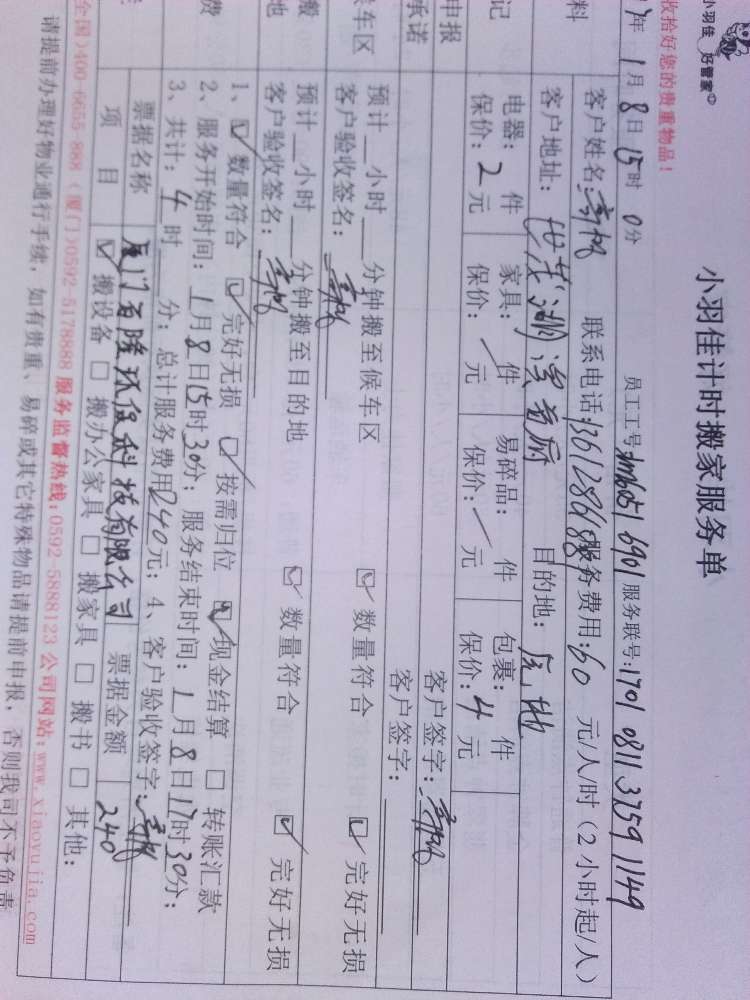 小羽佳 好管家
收拾好您的贵重物品！
小羽佳计时搬家服务单
年1月8日15时0分 员工工号: 服务联号:1701 0811 3759 1149
料
客户姓名: 联系电话: 服务费用:60 元/人/时（2小时起/人）
客户地址: 世茂湖滨首府 目的地: 原地
记
电器: 件 家具: 件 易碎品: 件 包裹: 件
保价: 2元 保价: / 元 保价: / 元 保价: 4元
申报 客户签字:
承诺 客户签字:
候车区 预计__小时___分钟搬至候车区 ☑ 数量符合 ☑ 完好无损
客户验收签名:
搬 预计__小时___分钟搬至目的地 ☑ 数量符合 ☑ 完好无损
地 客户验收签名:
费 1、☑ 数量符合 ☑ 完好无损 ☑ 按需归位 ☑ 现金结算 □ 转账汇款
2、服务开始时间: 1月8日15时30分; 服务结束时间: 1月8日17时30分;
3、共计: 4时___分; 总计服务费用240元; 4、客户验收签字:
票据名称 厦门百隆环保科技有限公司 票据金额 240
项 目 ☑ 搬设备 □ 搬办公家具 □ 搬家具 □ 搬书 □ 其他:
全国)400-6655-888 (厦门)0592-5178888 服务监督热线:0592-5888123 公司网站:www.xiaoyujia.com
请提前办理好物业通行手续，如有贵重、易碎或其它特殊物品请提前申报，否则我司不予负责